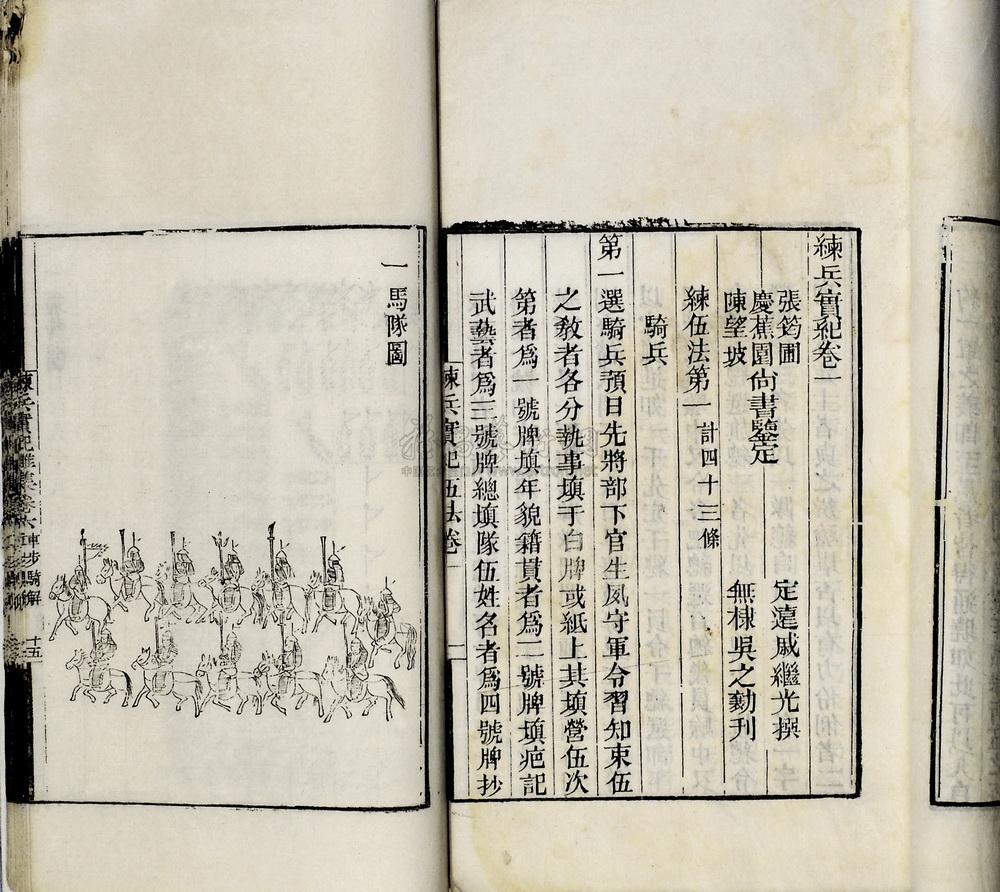 練兵實紀卷一
張筠圃
慶蕉園尙書鑒定
陳望坡
定遠戚繼光撰
無棣吳之勷刊
練伍法第一計四十三條
騎兵
第一選騎兵預日先將部下官生夙守軍令習知束伍
之教者各分執事填于白牌或紙上其填營伍次
第者爲一號牌填年貌籍貫者爲二號牌填疤記
武藝者爲三號牌總填隊伍姓名者爲四號牌抄
練兵實紀 伍法卷一 一
一馬隊圖
練兵實紀雜集卷六車步騎解 十五